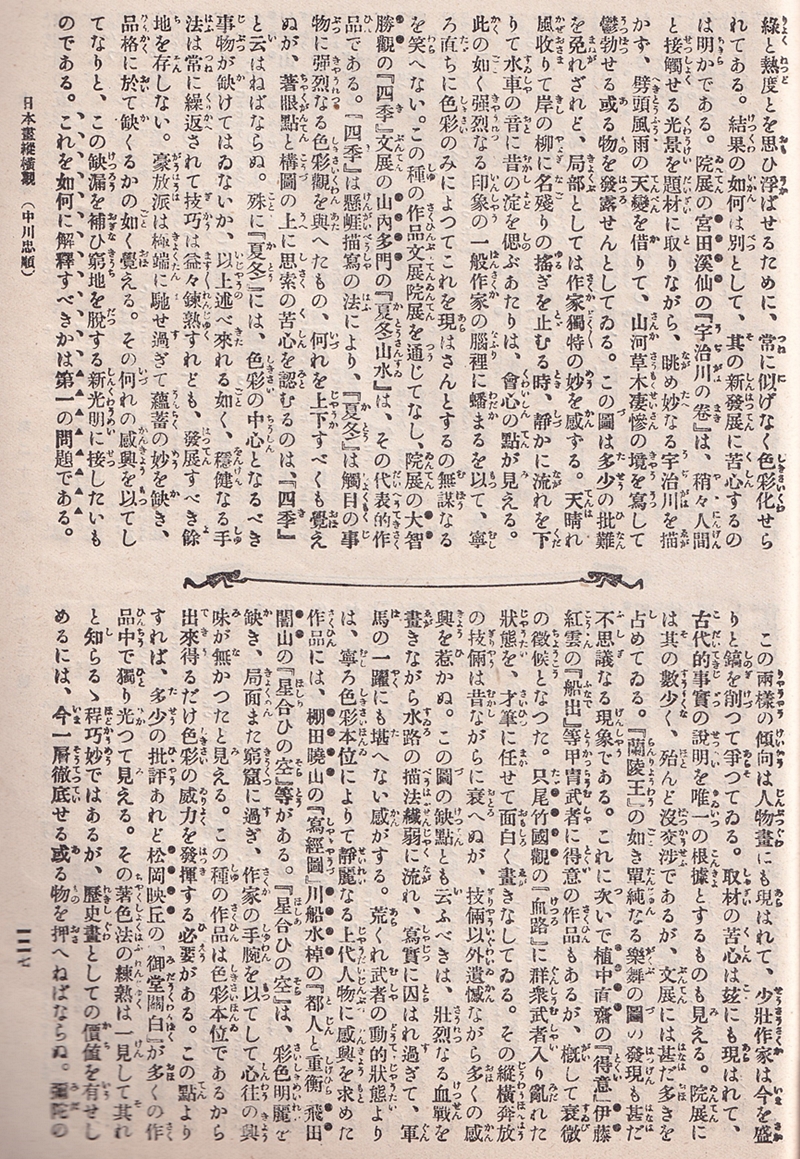 綠と熱度とを思ひ浮ばせるために、常に似げなく色彩化せら
れてある。結果の如何は別として、其の新發展に苦心するの
は明かである。院展の宮田溪仙の『宇治川の卷』は、稍々人間
と接觸せる光景を題材に取りながら、眺め妙なる宇治川を描
かず、劈頭風雨の天變を借りて、山河草木凄慘の境を寫して
鬱勃せる或る物を發露せんとしてゐる。この圖は多少の批難
を免れざれど、局部としては作家獨特の妙を感ずる。天晴れ
風收りて岸の柳に名殘りの搖ぎを止むる時、靜かに流れを下
りて水車の音に昔の淀を偲ぶあたりは、會心の點が見える。
此の如く强烈なる印象の一般作家の腦裡に蟠まるを以て、寧
ろ直ちに色彩のみによつてこれを現はさんとするの無謀なる
を笑へない。この種の作品文展院展を通じてなし、院展の大智
勝觀の『四季』文展の山內多門の『夏冬山水』は、その代表的作
品である。『四季』は懸崕描寫の法により、『夏冬』は觸目の事
物に强烈なる色彩觀を與へたもの、何れを上下すべくも覺え
ぬが、著眼點と構圖の上に思索の苦心を認むるのは、『四季』
と云はねばならぬ。殊に『夏冬』には、色彩の中心となるべき
事物が缺けてはゐないか、以上述べ來れる如く、穩健なる手
法は常に繰返されて技巧は益々鍊熟すれども、發展すべき餘
地を存しない。豪放派は極端に馳せ過ぎて蘊蓄の妙を缺き、
品格に於て缺くるかの如く覺える。その何れの感興を以てし
てなりと、この缺漏を補ひ窮地を脫する新光明に接したいも
のである。これを如何に解釋すべきかは第一の問題である。
この兩樣の傾向は人物畫にも現はれて、少壯作家は今を盛
りと鎬を削つて爭つてゐる。取材の苦心は玆にも現はれて、
古代的事實の說明を唯一の根據とするものも見える。院展に
は其の數少く、殆んど沒交涉であるが、文展には甚だ多きを
占めてゐる。『蘭陵王』の如き單純なる樂舞の圖の發現も甚だ
不思議なる現象である。これに次いで植中直齋の『得意』伊藤
紅雲の『船出』等甲冑武者に得意の作品もあるが、槪して衰微
の徵候となつた。只尾竹國觀の『血路』に群衆武者入り亂れた
狀態を、才筆に任せて面白く畫きなしてゐる。その縱橫奔放
の技倆は昔ながらに衰へぬが、技倆以外遺憾ながら多くの感
興を惹かぬ。この圖の缺點とも云ふべきは、壯烈なる血戰を
畫きながら水路の描法纖弱に流れ、寫實に囚はれ過ぎて、軍
馬の一躍にも堪へない感がする。荒くれ武者の動的狀態より
は、寧ろ色彩本位によりて靜麗なる上代人物に感興を求めた
作品には、棚田曉山の『寫經圖』川船水棹の『都人と重衡』飛田
闇山の『星合ひの空』等がある。『星合ひの空』は、彩色明麗を
缺き、局面また窮窟に過ぎ、作家の手腕を以てして心往の興
味が無かつたと見える。この種の作品は色彩本位であるから
出來得るだけ色彩の威力を發揮する必要がある。この點より
すれば、多少の批評あれど松岡映丘の『御堂關白』が多くの作
品中で獨り光つて見える。その著色法の練熟は一見して其れ
と知らるゝ程巧妙ではあるが、歷史畫としての價値を有せし
めるには、今一層徹底せる或る物を押へねばならぬ。
日本畫縱橫觀 （中川忠順）
一二七